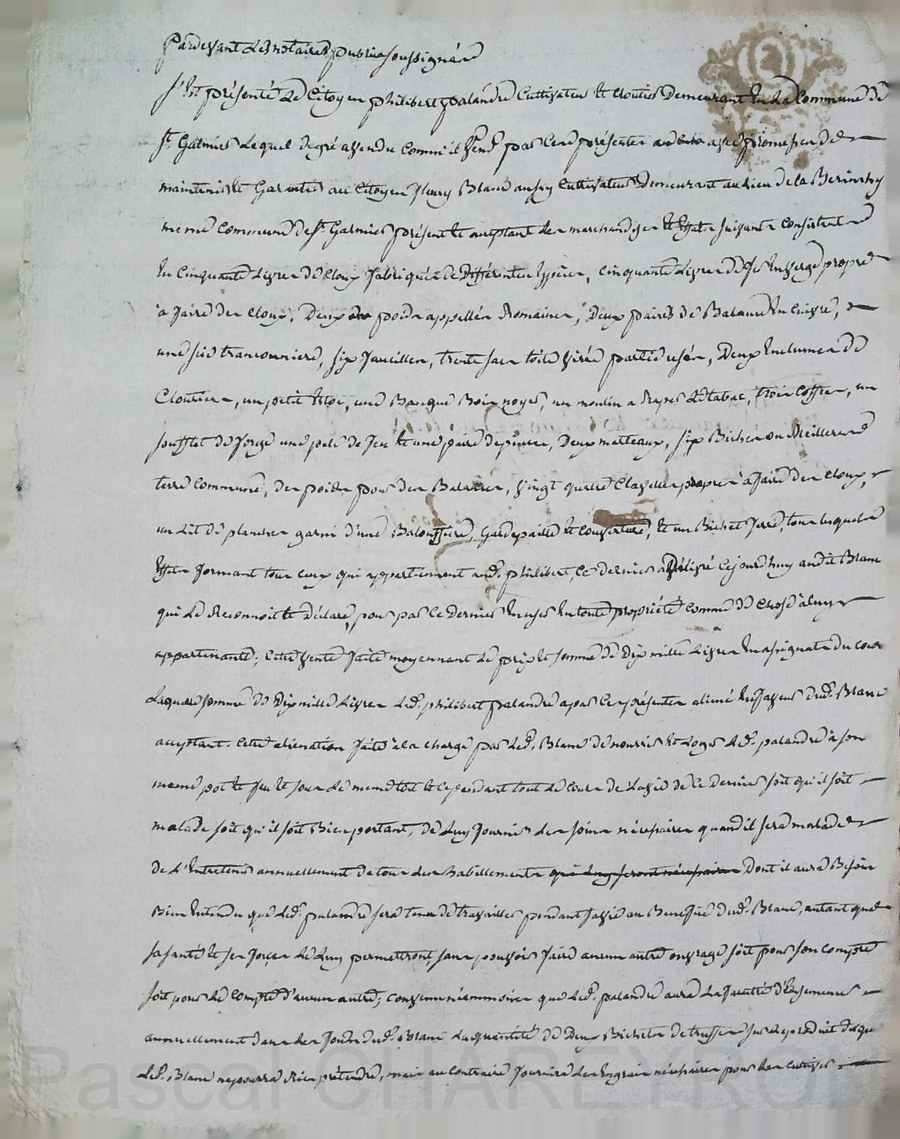 Pardevant Les notaires publics soussignés
S'est présenté Le Citoyen philibert palandre Cultivateur et Cloutier Demeurant En La Commune de
St. Galmier Lequel de gré a vendu comm'il vend par Ces présentes avec promesse de
maintenir et Garantir au Citoyen fleury Blanc aussy Cultivateur Demeurant au Lieu de la
meme Commune de St. Galmier présent et acceptant Les marchandises et Effets suivants Consistant
En Cinquante Livres de Cloux fabriqués de Différentes Espèces, cinquante Livres de fer En verge propre
à faire des Cloux, Deux poids appellés Romaines, Deux paires de Balance En Cuivre,
une scie tranconniere, six faucilles, trente sacs toile partie usés, Deux Enclumes de
Cloutier, un petit Etoc, une Banque Bois noyer, un moulin a Raper Le tabac, trois Coffres, un
soufflet de forge une pele de feu et une paire de pinces, Deux marteaux, six Bichets ou
terre Commune, des poids pour des Balances, vingt quatre propres à faire des Cloux,
un Lit de planches garni d'une Balouffiere, Gardepaille et Couverture, et un Bichet ferré, tous Lesquels
Effets formant tous ceux qui appartiennent aud. philibert, Ce dernier a Délivré Cejourd'huy audit Blanc
qui Le Reconnoit et Déclare, pour par Ce Dernier En user En toute propriété Comme de Chose à luy
appartenante; Cette vente faite moyennant Le prix et somme de Dix mille Livres En assignats du cours
Laquelle somme de Dix mille Livres Led. philibert palandre a par Ces présentes aliéné En faveur dud. Blanc
acceptant. Cette aliénation faite à la charge par Led. Blanc de nourrir et Loger Led. palandre à son
meme pot et feu et sous Le meme toit et Cependant tout Le Cours de La vie de Ce Dernier soit qu'il soit
malade soit qu'il soit Bien portant, de Luy fournir Les soins nécéssaires quand il sera malade
de L'Entretenir annuellement de tous Les habillements qui Luy seront nécéssaires Dont il aura Besoin
Bien Entendu que Led. palandre sera tenu de travailler pendant sa vie au Benefice dud. Blanc, autant que
sa santé et ses forces Le Luy permettront sans pouvoir faire aucun autre ouvrage soit pour son compte
soit pour Le Compte d'aucun autre; convenu néammoins que Led. palandre aura La faculté d'Ensemencer
annuellement dans Les fonds dud. Blanc La quantité de Deux Bichets de truffes sur Le produit desquels
Led. Blanc ne pourra Rien prétendre, mais au Contraire fournira Les Engrais nécéssaires pour Les Cultiver
Pascal CHAREYRON